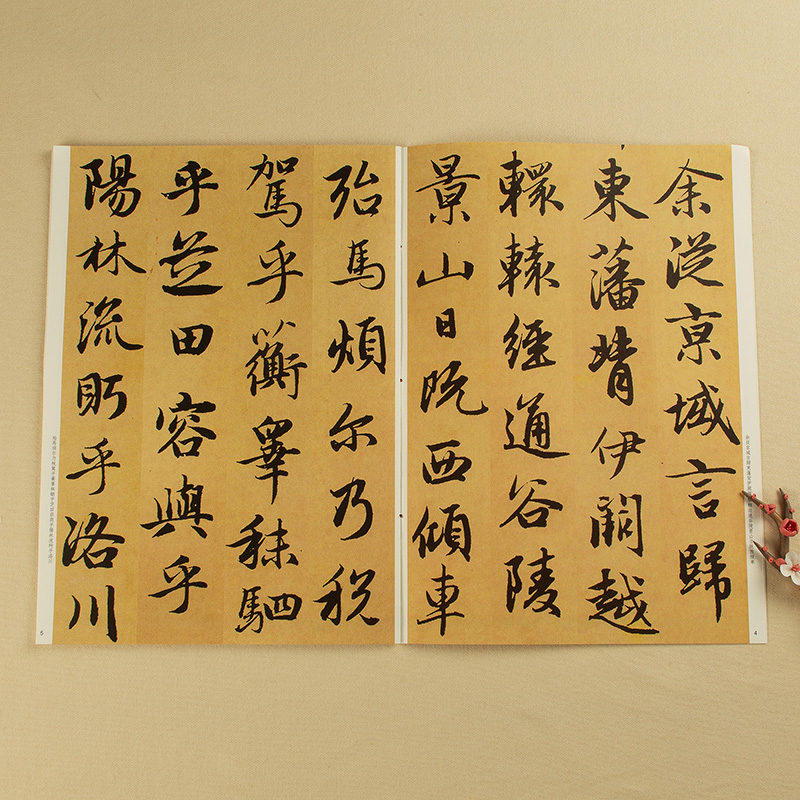 余從京城言歸
東藩背伊闕越
轘轅經通谷陵
景山日既西傾車
4
殆馬煩尔乃税
駕乎蘅皋秣駟
乎芝田容與乎
陽林流眄乎洛川
5